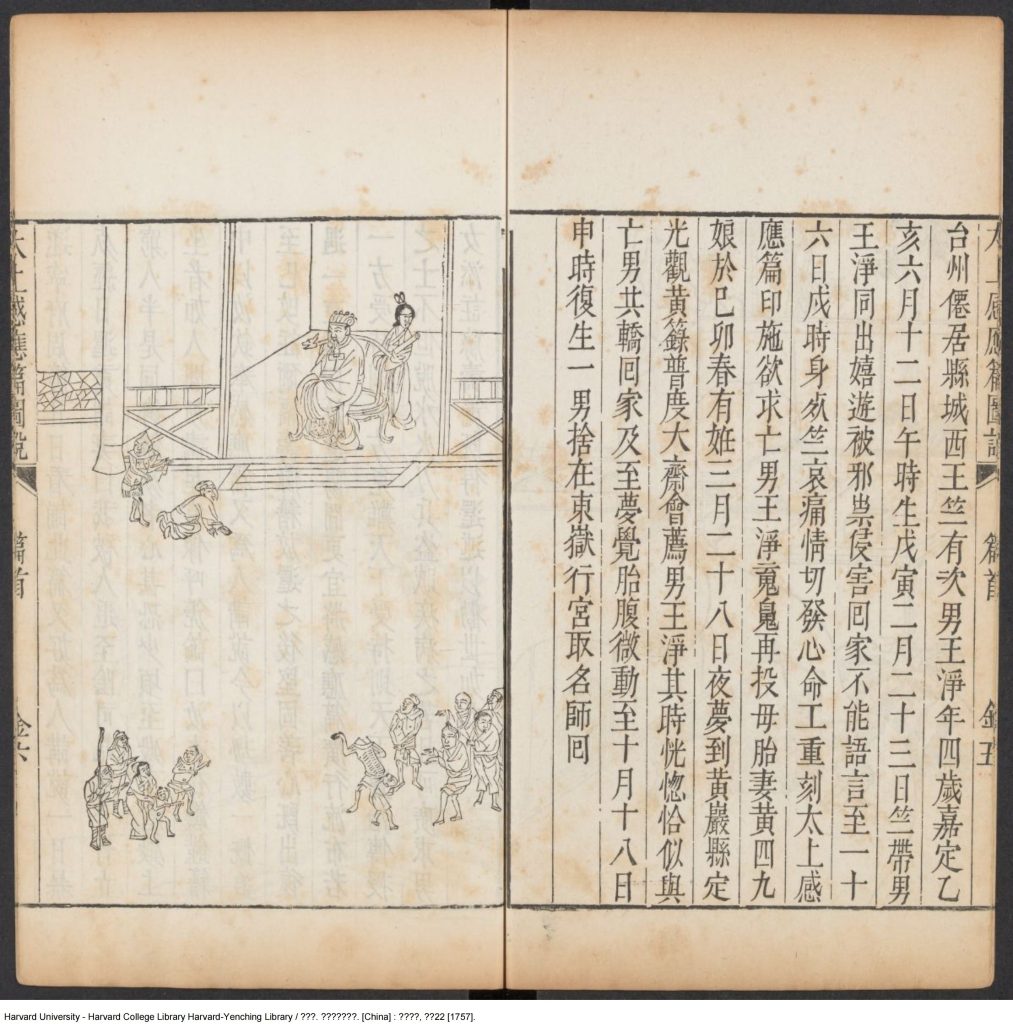 太上感應篇圖說 篇首 金五
台州僊居縣城西王竺有次男王淨年四歲嘉定乙
亥六月十二日午時生戊寅二月二十三日竺帶男
王淨同出嬉遊被邪祟侵害回家不能語言至一十
六日戌時身歿竺哀痛情切發心命工重刻太上感
應篇印施欲求亡男王淨䰟鬼再投母胎妻黃四九
娘於己卯春有姙三月二十八日夜夢到黃巖縣定
光觀黃籙普度大齋會薦男王淨其時恍惚恰似與
亡男共轎回家及至夢覺胎腹微動至十月十八日
申時復生一男捨在東嶽行宮取名師回
太上感應篇圖說 篇首 金六
Harvard University - Harvard College Library Harvard-Yenching Library / ???. ???????. [China] : ????, ??22 [1757].